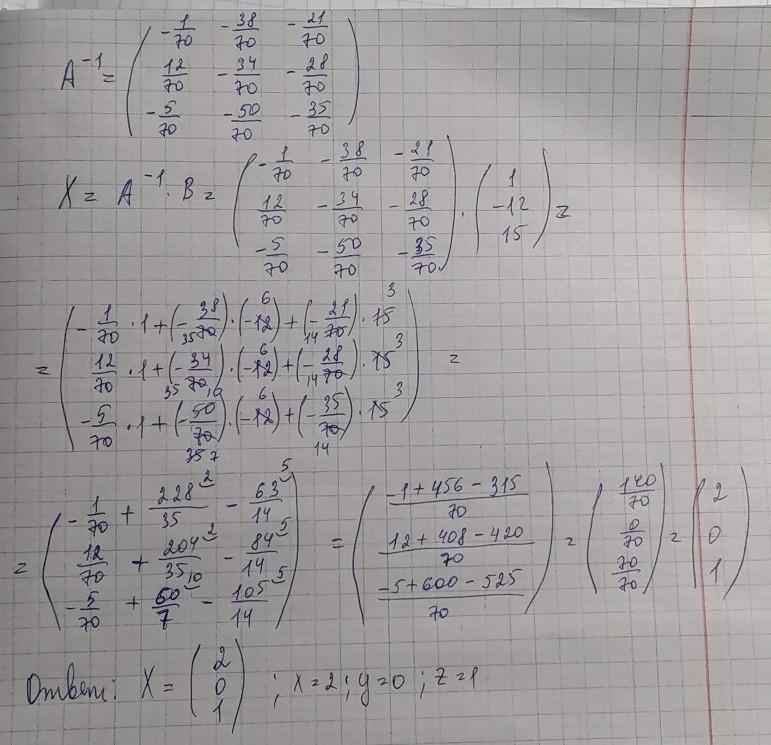 A⁻¹ = ( -1/70 -38/70 -21/70
12/70 -34/70 -28/70
-5/70 -50/70 -35/70 )
X = A⁻¹ · B = ( -1/70 -38/70 -21/70
12/70 -34/70 -28/70
-5/70 -50/70 -35/70 ) · ( 1
-12
15 ) =
= ( -1/70 · 1 + (-38/70) · (-12) + (-21/70) · 15
12/70 · 1 + (-34/70) · (-12) + (-28/70) · 15
-5/70 · 1 + (-50/70) · (-12) + (-35/70) · 15 ) =
= ( -1/70 + 228/35 - 63/14
12/70 + 204/35 - 84/14
-5/70 + 60/7 - 105/14 ) = ( (-1+456-315)/70
(12+408-420)/70
(-5+600-525)/70 ) = ( 140/70
0/70
70/70 ) = ( 2
0
1 )
Ответ: X = ( 2
0
1 ) ; x=2; y=0; z=1